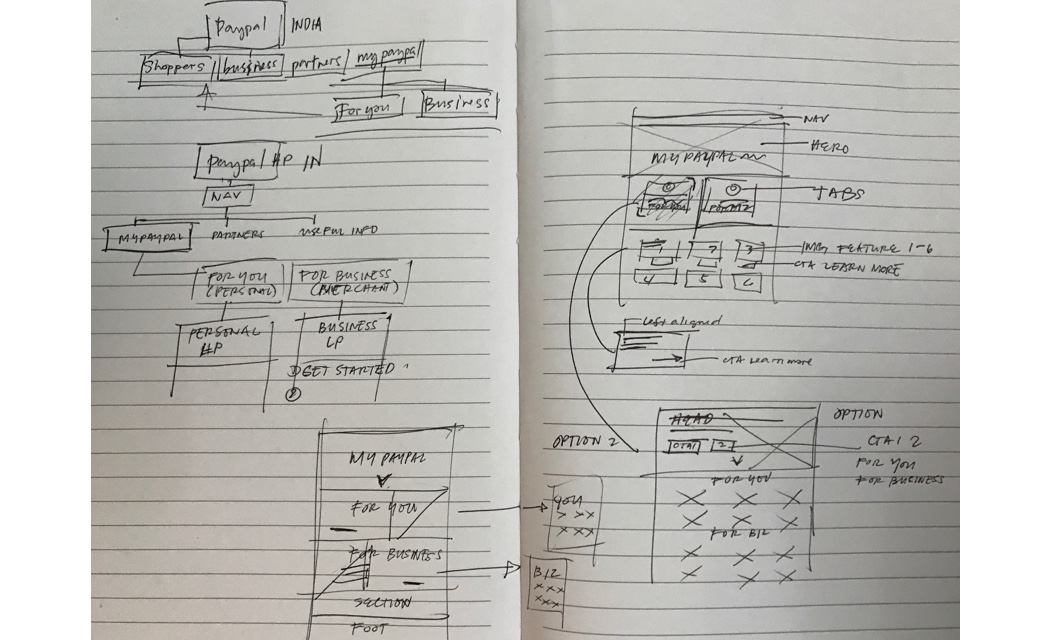 Paypal INDIA
Shoppers business partners my paypal
For you Business
Paypal HP IN
NAV
MYPAYPAL PARTNERS USEFUL INFO
FOR YOU (PERSONAL) FOR BUSINESS (MERCHANT)
PERSONAL HP
BUSINESS LP
GET STARTED
MY PAYPAL
FOR YOU
FOR BUSINESS
SECTION
FOOT
NAV
HERO
MY PAYPAL
TABS
FOR YOU
FOR BIZ
1 2 3
IMG FEATURE 1-6
CTA LEARN MORE
4 5 6
Left aligned
CTA Learn more
OPTION 2
YOU
BIZ
OPTION
HEAD
CTA1 2
CTA 1 2
FOR YOU
FOR BUSINESS
FOR YOU
FOR BIZ